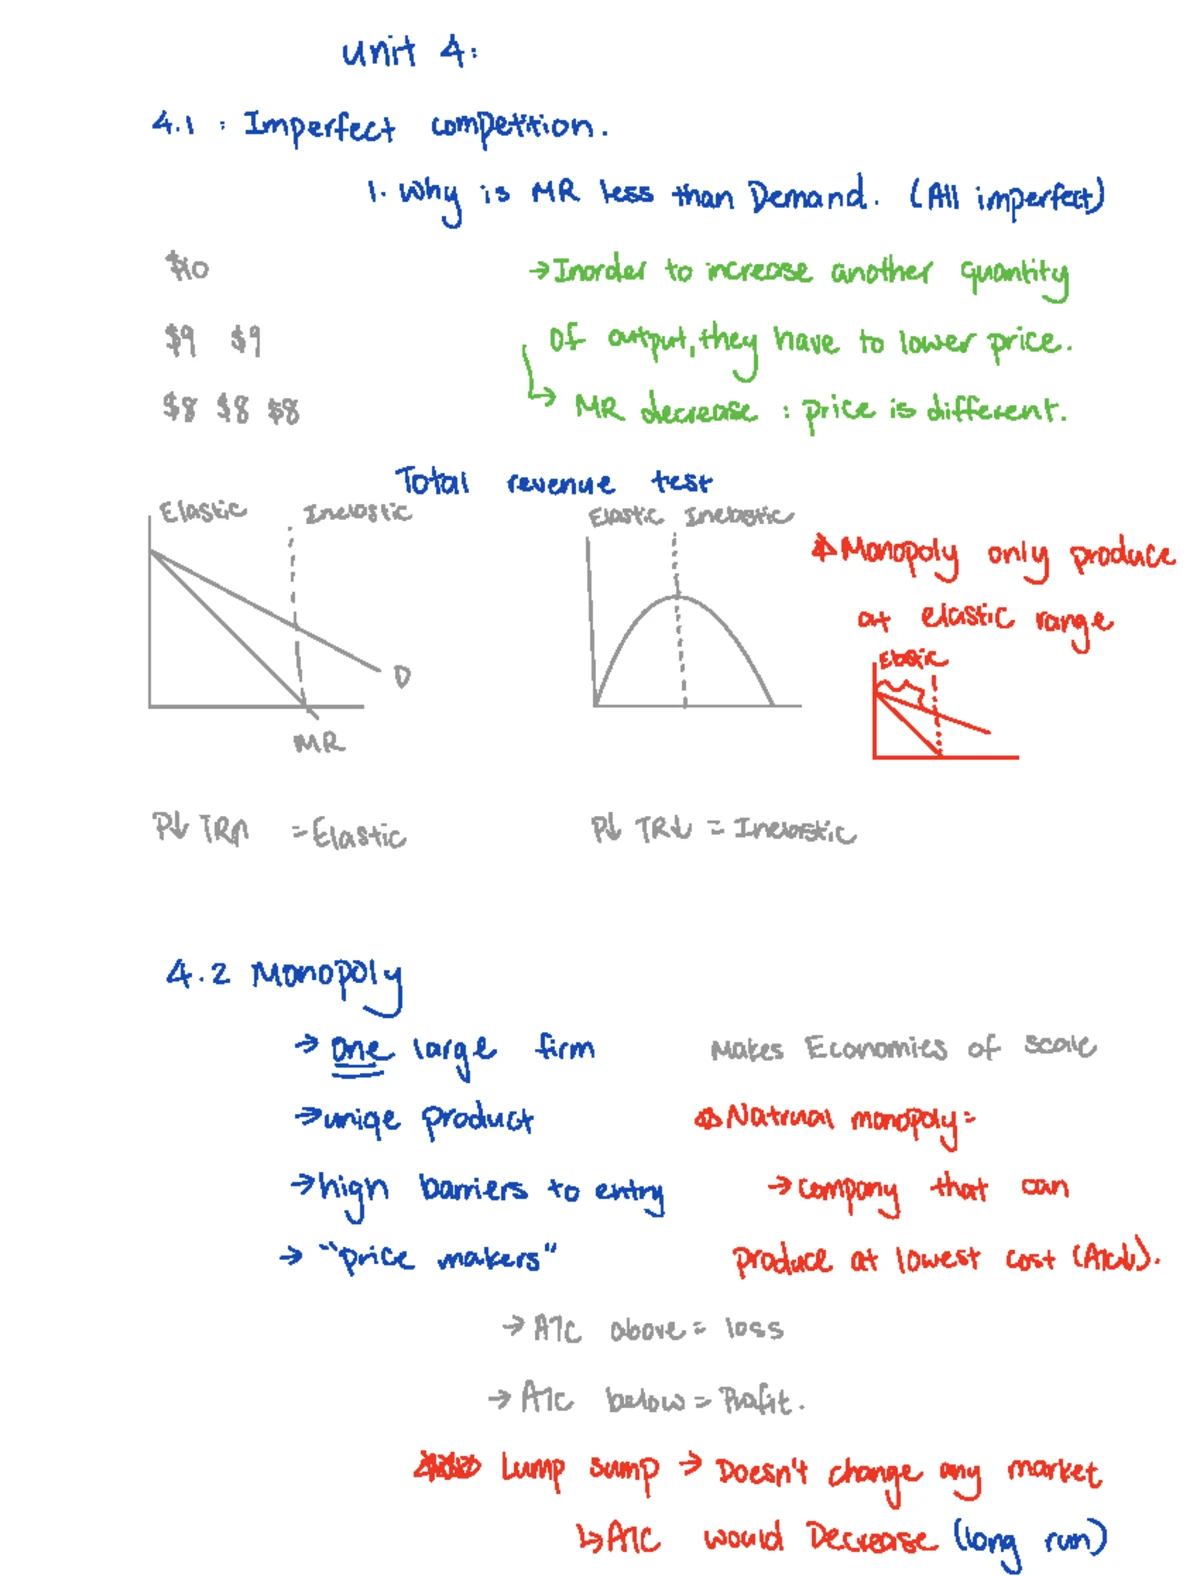 Unit 4:
4.1 : Imperfect competition.
1. Why is MR less than Demand. (All imperfect)
$10
→ Inorder to increase another quantity
$9 $9
of output, they have to lower price.
$8 $8 $8
↳ MR decrease : price is different.
Total revenue test
Elastic Inelastic
Elastic Inelastic
Monopoly only produce
at elastic range
Elastic
D
MR
P↓ TR↑ = Elastic
P↓ TR↓ = Inelastic
4.2 Monopoly
→ one large firm
Makes Economies of scale
→ uniqe product
Natrual monopoly =
→ high barriers to entry
→ company that can
→ "price makers"
produce at lowest cost (ATC↓).
→ ATC above = loss
→ ATC below = Profit.
Lump sump → Doesn't change any market
↳ ATC would Decrease (long run)